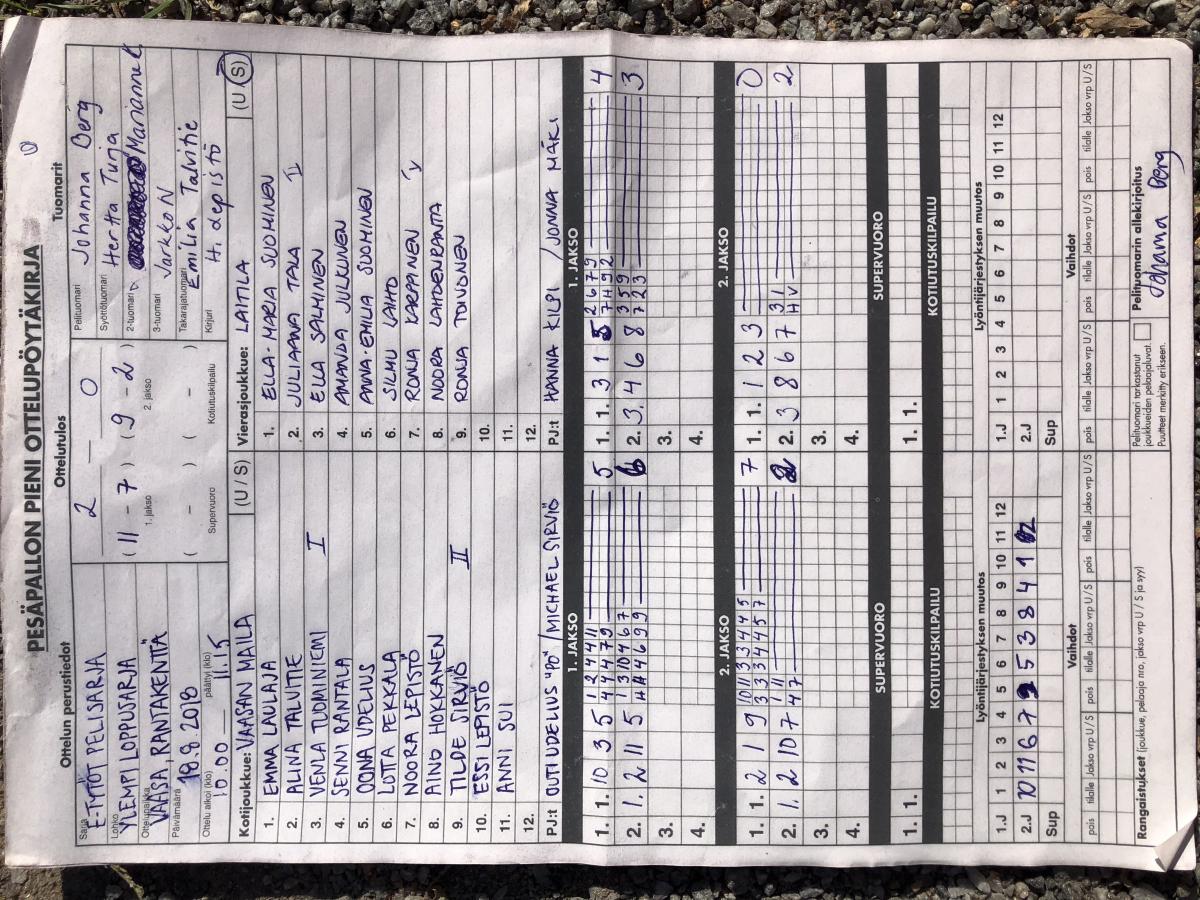 PESÄPALLON PIENI OTTELUPÖYTÄKIRJA
Ottelun perustiedot
Ottelutulos
Tuomarit
Sarja E-TYTÖT PELISARJA
Lohko YLEMPI LOPPUSARJA
Ottelupaikka VAASA, RANTAKENTTÄ
Päivämäärä 18.8.2018
Ottelu alkoi (klo) 10.00 päättyi (klo) 11.15
2 – 0
( 11 - 7 ) ( 9 - 2 )
1. jakso 2. jakso
( - ) ( - )
Supervuoro Kotiutuskilpailu
Pelituomari Johanna Berg
Syöttötuomari Hertta Turja
2-tuomari Marianne K
3-tuomari Jarkko N
Takarajatuomari Emilia Talvitie
Kirjuri H. depistö
Kotijoukkue: VAASAN MAILA (U / S)
1. EMMA LAULAJA
2. ALINA TALVITIE
3. VENLA TUOMINIEMI I
4. JENNI RANTALA
5. OONA UDELIUS
6. LOTTA PEKKALA
7. NOORA LEPISTÖ
8. AINO HOKKANEN
9. TILDE SIRVIÖ II
10. ESSI LEPISTÖ
11. ANNI SUI
12.
PJ:t OUTI UDELIUS "40" / MICHAEL SIRVIÖ
Vierasjoukkue: LAITILA (U / S)
1. ELLA-MARIA SUOMINEN
2. JULIAANA TALA I
3. ELLA SALMINEN
4. AMANDA JULKUNEN
5. ANNA-EMILIA SUOMINEN
6. SILMU LAHTO
7. RONJA KARPAINEN
8. NOORA LAHDENRANTA
9. RONJA TOIVONEN
10.
11.
12.
PJ:t HANNA KILPI / JONNA MÄKI
1. JAKSO
1. JAKSO
1. 1. 10 3 5 1 2 4 4 11 5
4 4 4 7 9
2. 1. 2 11 5 1 3 10 4 6 7 6
H A 4 6 9 9
3.
4.
1. 1. 3 1 5 2 6 7 9 4
7 H 9 2
2. 3. 4 6 8 3 5 9 3
7 2 3
3.
4.
2. JAKSO
2. JAKSO
1. 1. 2 1 9 10 11 3 3 4 4 5 7
3 3 3 4 4 5 7
2. 1. 2 10 7 1 11 2
4 7
3.
4.
1. 1. 1 2 3 0
2. 3 8 6 7 3 1 2
H V
3.
4.
SUPERVUORO
SUPERVUORO
1. 1.
1. 1.
KOTIUTUSKILPAILU
KOTIUTUSKILPAILU
Lyöntijärjestyksen muutos
Lyöntijärjestyksen muutos
1.J 1 2 3 4 5 6 7 8 9 10 11 12
2.J 10 11 6 7 9 2 5 3 8 4 1 12
Sup
1.J 1 2 3 4 5 6 7 8 9 10 11 12
2.J
Sup
Vaihdot
Vaihdot
pois tilalle Jakso vrp U / S pois tilalle Jakso vrp U / S pois tilalle Jakso vrp U / S
pois tilalle Jakso vrp U / S pois tilalle Jakso vrp U / S pois tilalle Jakso vrp U / S
Rangaistukset (joukkue, pelaaja nro, jakso vrp U / S ja syy)
Pelituomari tarkastanut
joukkueiden pelaajaluvat.
Puutteet merkitty erikseen.
Pelituomarin allekirjoitus
Johanna Berg